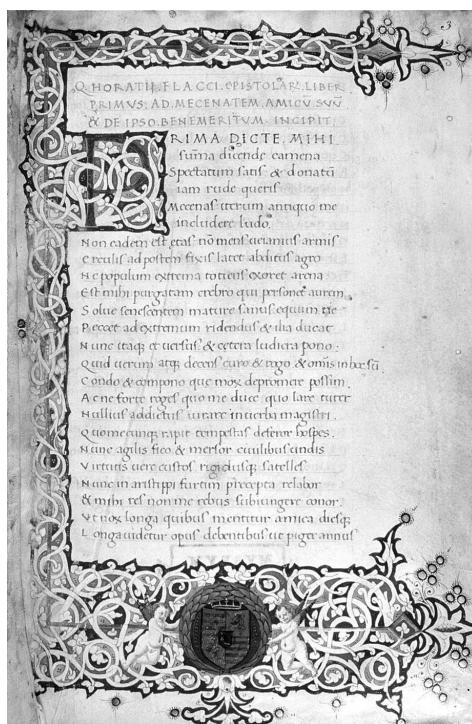 3
Q. HORATII. FLACCI. EPISTOLAR. LIBER
PRIMUS. AD. MECENATEM. AMICŪ. SUŪ
& DE IPSO. BENEMERITUM. INCIPIT.
PRIMA DICTE MIHI
sūma dicende camena
Spectatum satis & donatū
iam rude queris
Mecenas iterum antiquo me
includere ludo.
Non eadem est etas nō mens ueianius armis
Erculis ad postem fixis latet abditus agro
Ne populum extrema totiens exoret arena
Est mihi purgatam crebro qui personet aurem
Solue senescentem mature sanus equum ne
Peccet ad extremum ridendus & ilia ducat
Nunc itaq; et uersus & cetera ludicra pono:
Quid uerum atq; decens curo & rogo & omīs in hoc sū
Condo & compono que mox depromere possim.
Ac ne forte roges quo me duce quo lare tuter
Nullius addictus iurare in uerba magistri.
Quo me cunq; rapit tempestas deferor hospes.
Nunc agilis fio & mersor ciuilibus undis
Virtutis uere custos rigidusq; satelles.
Nunc in aristippi furtim precepta relabor
& mihi res non me rebus subiungere conor.
Vt nox longa quibus mentitur amica diesq;
Longa uidetur opus debentibus ut piger annus